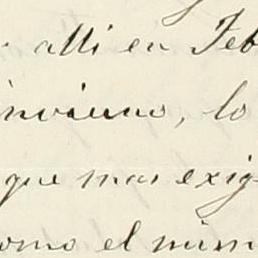 alli en Feb
invierno, lo
que mas exig
omo el mism